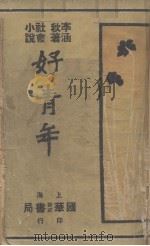 李涵秋著社會小說
好青年
上海
國華書局
印行